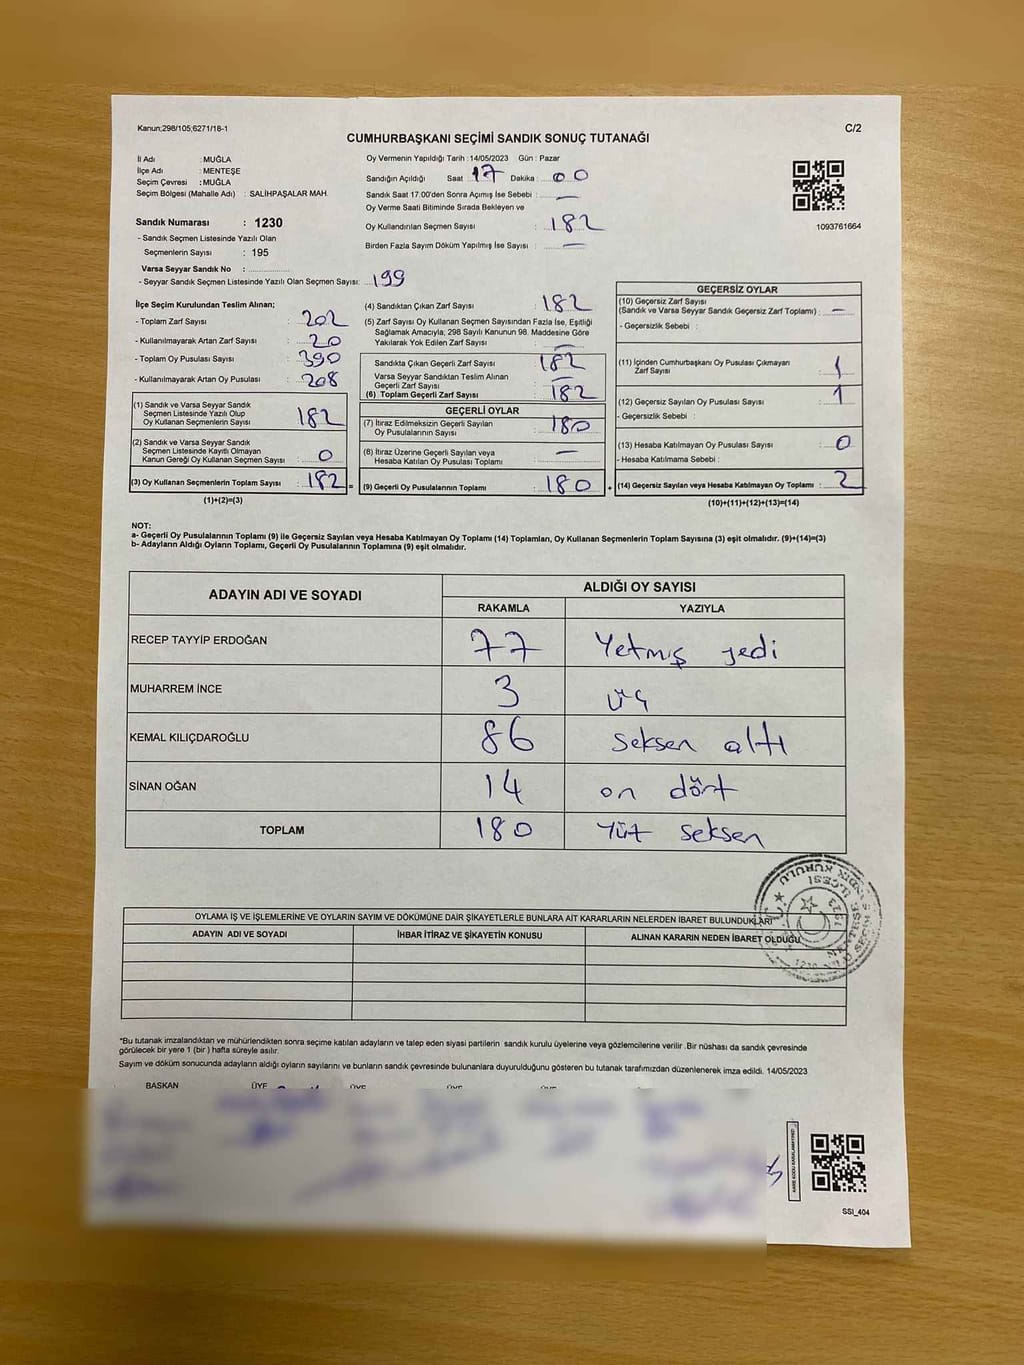 Kanun;298/105;6271/18-1
C/2
CUMHURBAŞKANI SEÇİMİ SANDIK SONUÇ TUTANAĞI
İl Adı : MUĞLA
İlçe Adı : MENTEŞE
Seçim Çevresi : MUĞLA
Seçim Bölgesi (Mahalle Adı) : SALİHPAŞALAR MAH.
Sandık Numarası : 1230
- Sandık Seçmen Listesinde Yazılı Olan
Seçmenlerin Sayısı : 195
Varsa Seyyar Sandık No :
- Seyyar Sandık Seçmen Listesinde Yazılı Olan Seçmen Sayısı: 199
Oy Vermenin Yapıldığı Tarih : 14/05/2023 Gün : Pazar
Sandığın Açıldığı Saat 17 Dakika : 00
Sandık Saat 17.00'den Sonra Açımış İse Sebebi : —
Oy Verme Saati Bitiminde Sırada Bekleyen ve
Oy Kullandırılan Seçmen Sayısı : 182
Birden Fazla Sayım Döküm Yapılmış İse Sayısı : —
1093761664
İlçe Seçim Kurulundan Teslim Alınan;
- Toplam Zarf Sayısı : 202
- Kullanılmayarak Artan Zarf Sayısı : 20
- Toplam Oy Pusulası Sayısı : 390
- Kullanılmayarak Artan Oy Pusulası : 208
(1) Sandık ve Varsa Seyyar Sandık
Seçmen Listesinde Yazılı Olup
Oy Kullanan Seçmenlerin Sayısı : 182
(2) Sandık ve Varsa Seyyar Sandık
Seçmen Listesinde Kayıtlı Olmayan
Kanun Gereği Oy Kullanan Seçmen Sayısı : 0
(3) Oy Kullanan Seçmenlerin Toplam Sayısı : 182 =
(1)+(2)=(3)
(4) Sandıktan Çıkan Zarf Sayısı : 182
(5) Zarf Sayısı Oy Kullanan Seçmen Sayısından Fazla İse, Eşitliği
Sağlamak Amacıyla; 298 Sayılı Kanunun 98. Maddesine Göre
Yakılarak Yok Edilen Zarf Sayısı : —
Sandıkta Çıkan Geçerli Zarf Sayısı : 182
Varsa Seyyar Sandıktan Teslim Alınan
Geçerli Zarf Sayısı :
(6) Toplam Geçerli Zarf Sayısı : 182
GEÇERLİ OYLAR
(7) İtiraz Edilmeksizin Geçerli Sayılan
Oy Pusulalarının Sayısı : 180
(8) İtiraz Üzerine Geçerli Sayılan veya
Hesaba Katılan Oy Pusulası Toplamı : —
(9) Geçerli Oy Pusulalarının Toplamı : 180 +
GEÇERSİZ OYLAR
(10) Geçersiz Zarf Sayısı
(Sandık ve Varsa Seyyar Sandık Geçersiz Zarf Toplamı) : —
- Geçersizlik Sebebi :
(11) İçinden Cumhurbaşkanı Oy Pusulası Çıkmayan
Zarf Sayısı : 1
(12) Geçersiz Sayılan Oy Pusulası Sayısı : 1
- Geçersizlik Sebebi :
(13) Hesaba Katılmayan Oy Pusulası Sayısı : 0
- Hesaba Katılmama Sebebi :
(14) Geçersiz Sayılan veya Hesaba Katılmayan Oy Toplamı : 2
(10)+(11)+(12)+(13)=(14)
NOT:
a- Geçerli Oy Pusulalarının Toplamı (9) ile Geçersiz Sayılan veya Hesaba Katılmayan Oy Toplamı (14) Toplamları, Oy Kullanan Seçmenlerin Toplam Sayısına (3) eşit olmalıdır. (9)+(14)=(3)
b- Adayların Aldığı Oyların Toplamı, Geçerli Oy Pusulalarının Toplamına (9) eşit olmalıdır.
ADAYIN ADI VE SOYADI ALDIĞI OY SAYISI
RAKAMLA YAZIYLA
RECEP TAYYİP ERDOĞAN 77 Yetmiş yedi
MUHARREM İNCE 3 üç
KEMAL KILIÇDAROĞLU 86 seksen altı
SİNAN OĞAN 14 on dört
TOPLAM 180 Yüz seksen
OYLAMA İŞ VE İŞLEMLERİNE VE OYLARIN SAYIM VE DÖKÜMÜNE DAİR ŞİKAYETLERLE BUNLARA AİT KARARLARIN NELERDEN İBARET BULUNDUKLARI
ADAYIN ADI VE SOYADI İHBAR İTİRAZ VE ŞİKAYETİN KONUSU ALINAN KARARIN NEDEN İBARET OLDUĞU
*Bu tutanak imzalandıktan ve mühürlendikten sonra seçime katılan adayların ve talep eden siyasi partilerin sandık kurulu üyelerine veya gözlemcilerine verilir. Bir nüshası da sandık çevresinde
görülecek bir yere 1 (bir) hafta süreyle asılır.
Sayım ve döküm sonucunda adayların aldığı oyların sayılarını ve bunların sandık çevresinde bulunanlara duyurulduğunu gösteren bu tutanak tarafımızdan düzenlenerek imza edildi. 14/05/2023
BAŞKAN ÜYE ÜYE ÜYE ÜYE
SSI_404